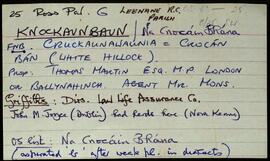 25 Ross Par. G LEENANE R.C. PARISH
KNOCKAUNBAUN / Na Cnocáin Bhána
FNB. CRUCKAUNAWAUNIA = CROCÁN
BÁN (WHITE HILLOCK).
PROP: THOMAS MARTIN ESQ. M.P. LONDON
OR BALLYNAHINCH. AGENT MR. MONS.
Griffiths: Dirs. Law Life Assurance Co.
John M. Joyce (Dublin) and Rorde here (Nora Keane)
OS list: Na Cnocáin Bhána
(aspirated b after weak pl. in dialects)